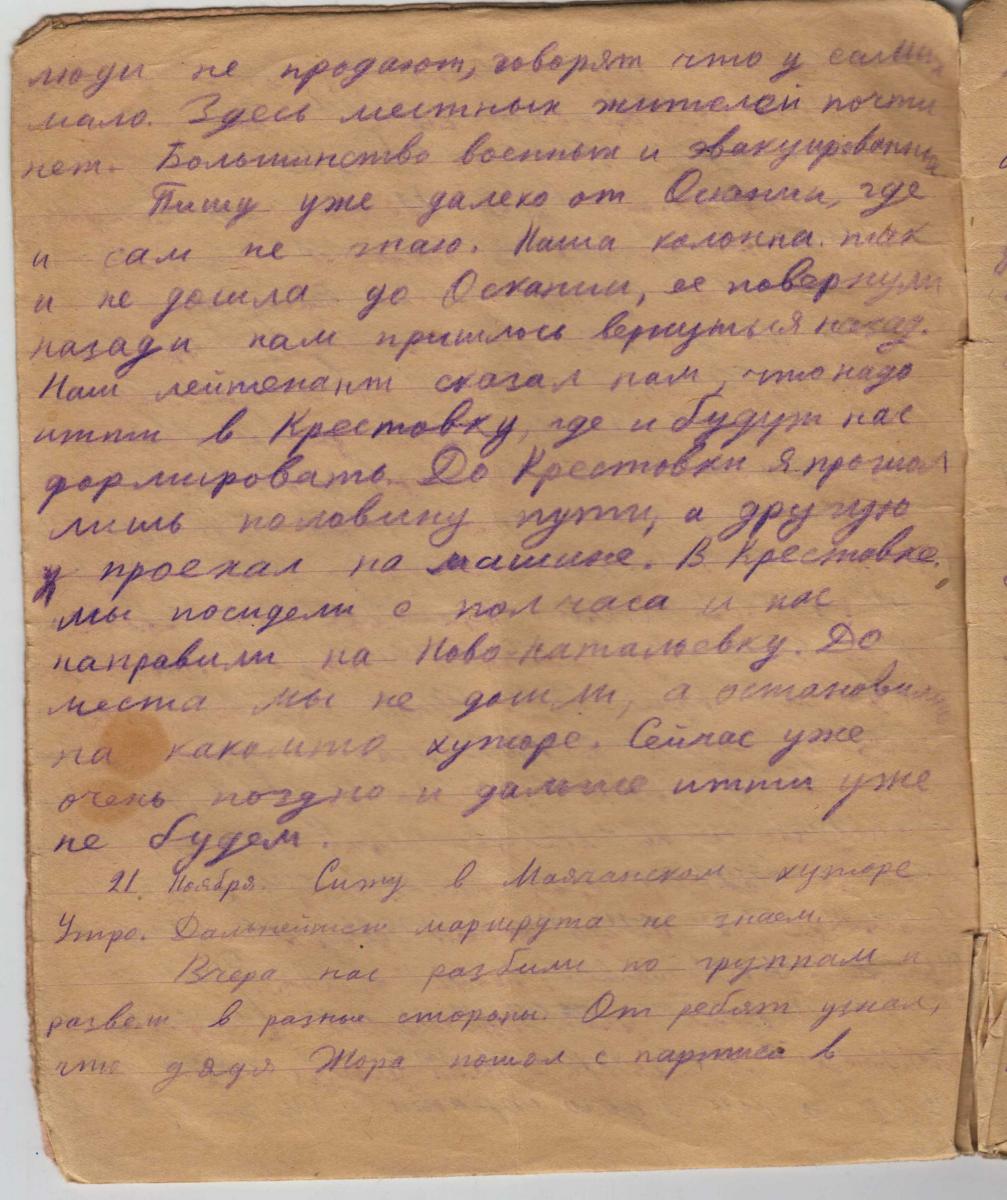 люди не продают, говорят что у самих
мало. Здесь местных жителей почти
нет. Большинство военных и эвакуированных
Пишу уже далеко от Оскании, где
и сам не знаю. Наша колонна так
и не дошла до Оскании, ее повернули
назад и нам пришлось вернуться назад.
Наш лейтенант сказал нам, что надо
итти в Крестовку, где и будут нас
формировать. До Крестовки я прошол
лишь половину пути, а другую
проехал на машине. В Крестовке,
мы посидели с пол часа и нас
направили на Ново-натальевку. До
места мы не дошли, а остановились
на какомто хуторе. Сейчас уже
очень поздно и дальше итти уже
не будем.
21 Ноября. Сижу в Маячанском хуторе
Утро. Дальнейшего маршрута не знаем.
Вчера нас разбили по группам и
развели в разные стороны. От ребят узнал,
что дядя Жора пошол с партией в